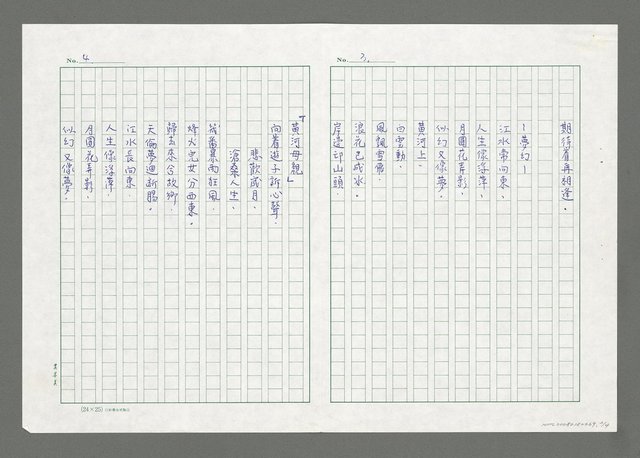 No. 3.
期待着再相逢。
—夢幻—
江水常向東、
人生像浮萍、
月圓花弄影、
似幻又像夢。
黃河上—
白雲動、
風飄雪飛
浪花已成冰。
岸邊卻山頭
No. 4
「黃河母親」
向着遊子訴心聲.
悲歡歲月.
滄桑人生.
幾番暴雨狂風.
烽火兒女分西東.
歸去來兮故鄉.
天倫夢迴斷腸.
江水長向東
人生像浮萍
月圓花弄影.
似幻又像夢.
(24×25)